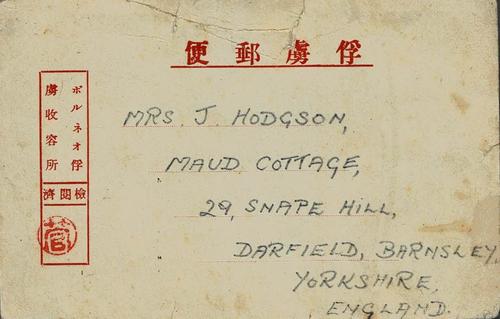 俘虜郵便
MRS J HODGSON,
MAUD COTTAGE,
29, SNAPE HILL,
DARFIELD, BARNSLEY,
YORKSHIRE,
ENGLAND.
ボルネオ俘
虜收容所
檢閱濟